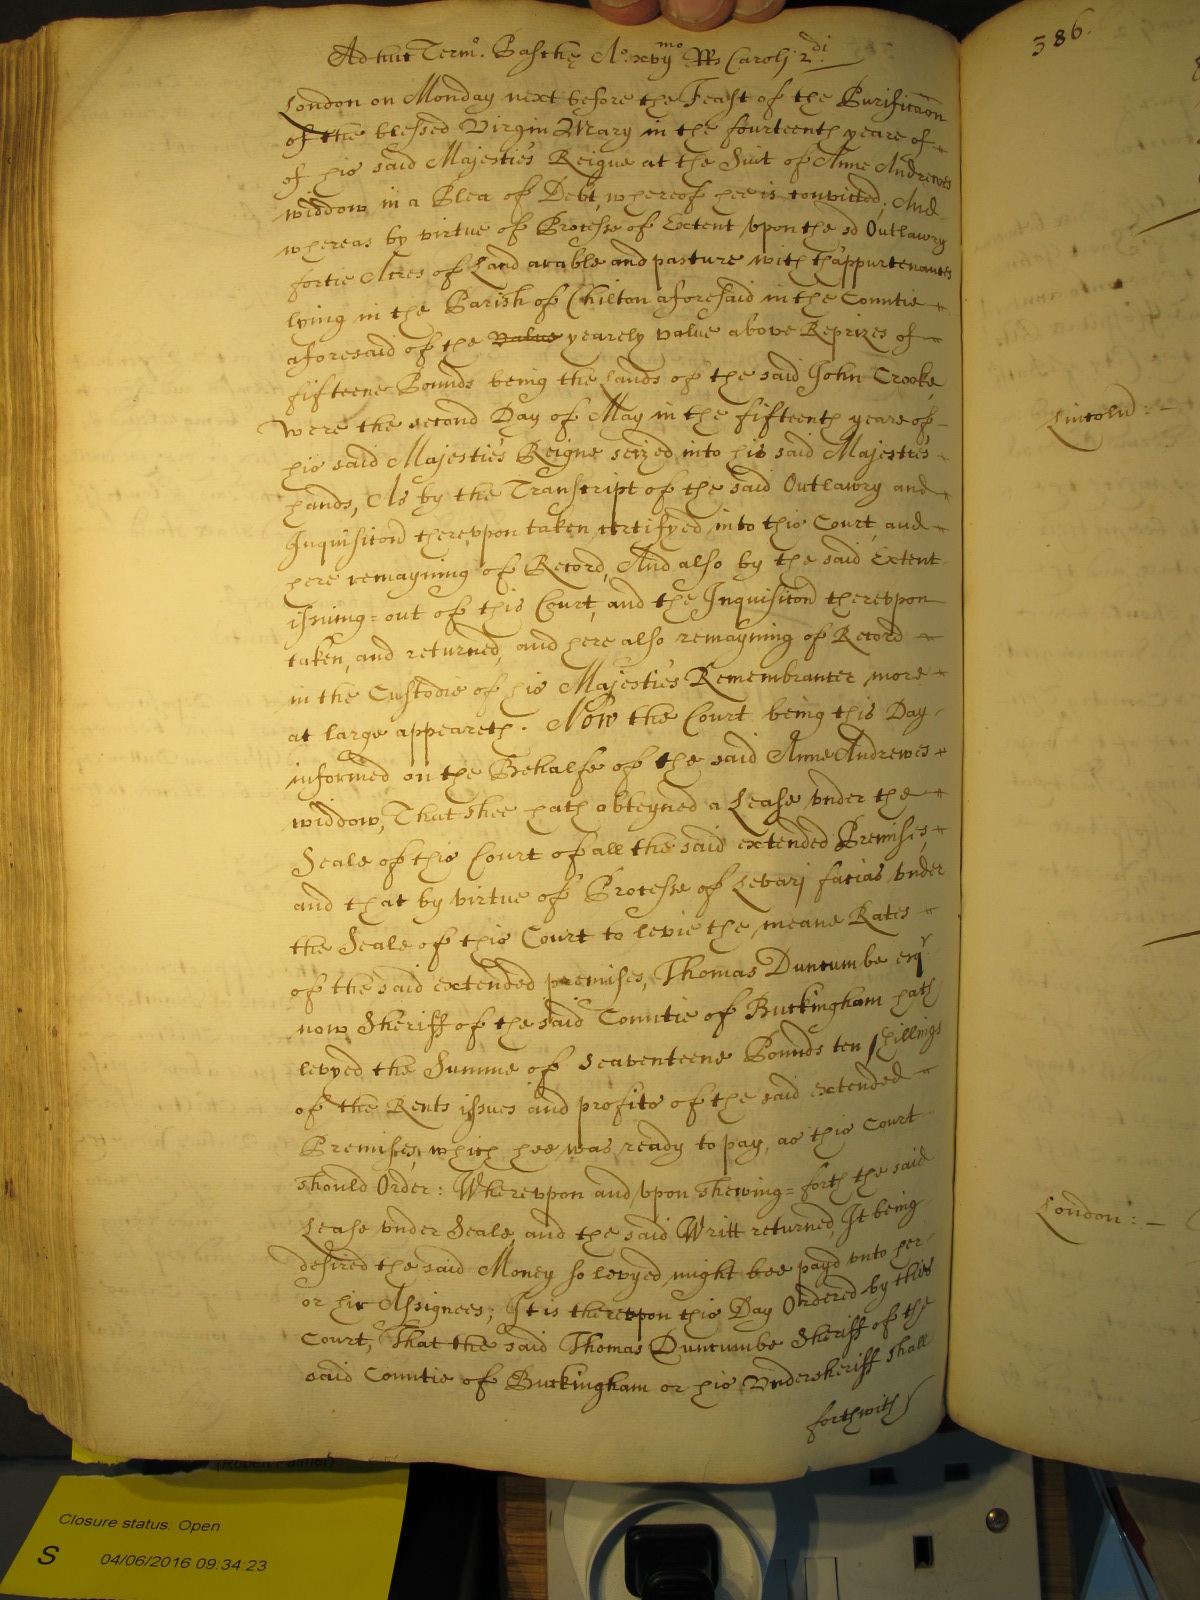 Adhuc Termo. Pasche Ao. xvijmo Rs Caroli 2di.
London on Monday next before the Feast of the Purificaon
of the blessed Virgin Mary in the fourteenth yeare of
of his said Majesties Reigne at the Suit of Anne Andrewes
widdow in a Plea of Debt, whereof hee is convicted; And
whereas by virtue of Processe of Extent vpon the sd Outlawry
fortie Acres of Land arable and pasture with thappurtenances
lying in the Parish of Chilton aforesaid in the Countie
aforesaid of the value yearely value above Reprizes of
fifteene Pounds being the Lands of the said John Crooke,
Were the second Day of May in the fifteenth yeare of
his said Majesties Reigne seized into his said Majesties
hands, As by the Transcript of the said Outlawry and
Inquisicon therevpon taken certifyed into this Court, and
here remayning of Record, And also by the said Extent
issuing=out of this Court, and the Inquisicon therevpon
taken, and returned, and here also remayning of Record
in the Custodie of his Majesties Remembrancer more
at large appeareth. Now the Court being this Day
informed on the Behalfe of the said Anne Andrewes
widdow, That shee hath obteyned a Lease vnder the
Seale of this Court of all the said extended Premises,
and that by virtue of Processe of Levari facias vnder
the Seale of this Court to levie the meane Rates
of the said extended premises, Thomas Duncumbe esqr
now Sheriff of the said Countie of Buckingham hath
levyed the Summe of Seaventeene Pounds ten shillings
of the Rents issues and profits of the said extended
Premises, which hee was ready to pay, as this Court
should Order: Wherevpon and vpon shewing=forth the said
Lease vnder Seale, and the said Writt returned, It being
desired the said Money so levyed might bee payd vnto her
or hir Assignees; It is therevpon this Day Ordered by this
Court, That the said Thomas Duncumbe Sheriff of the
said Countie of Buckingham or his Vndersheriff shall
forthwith
386.
Lincoln: –
London: –
Closure status: Open
S 04/06/2016 09:34:23